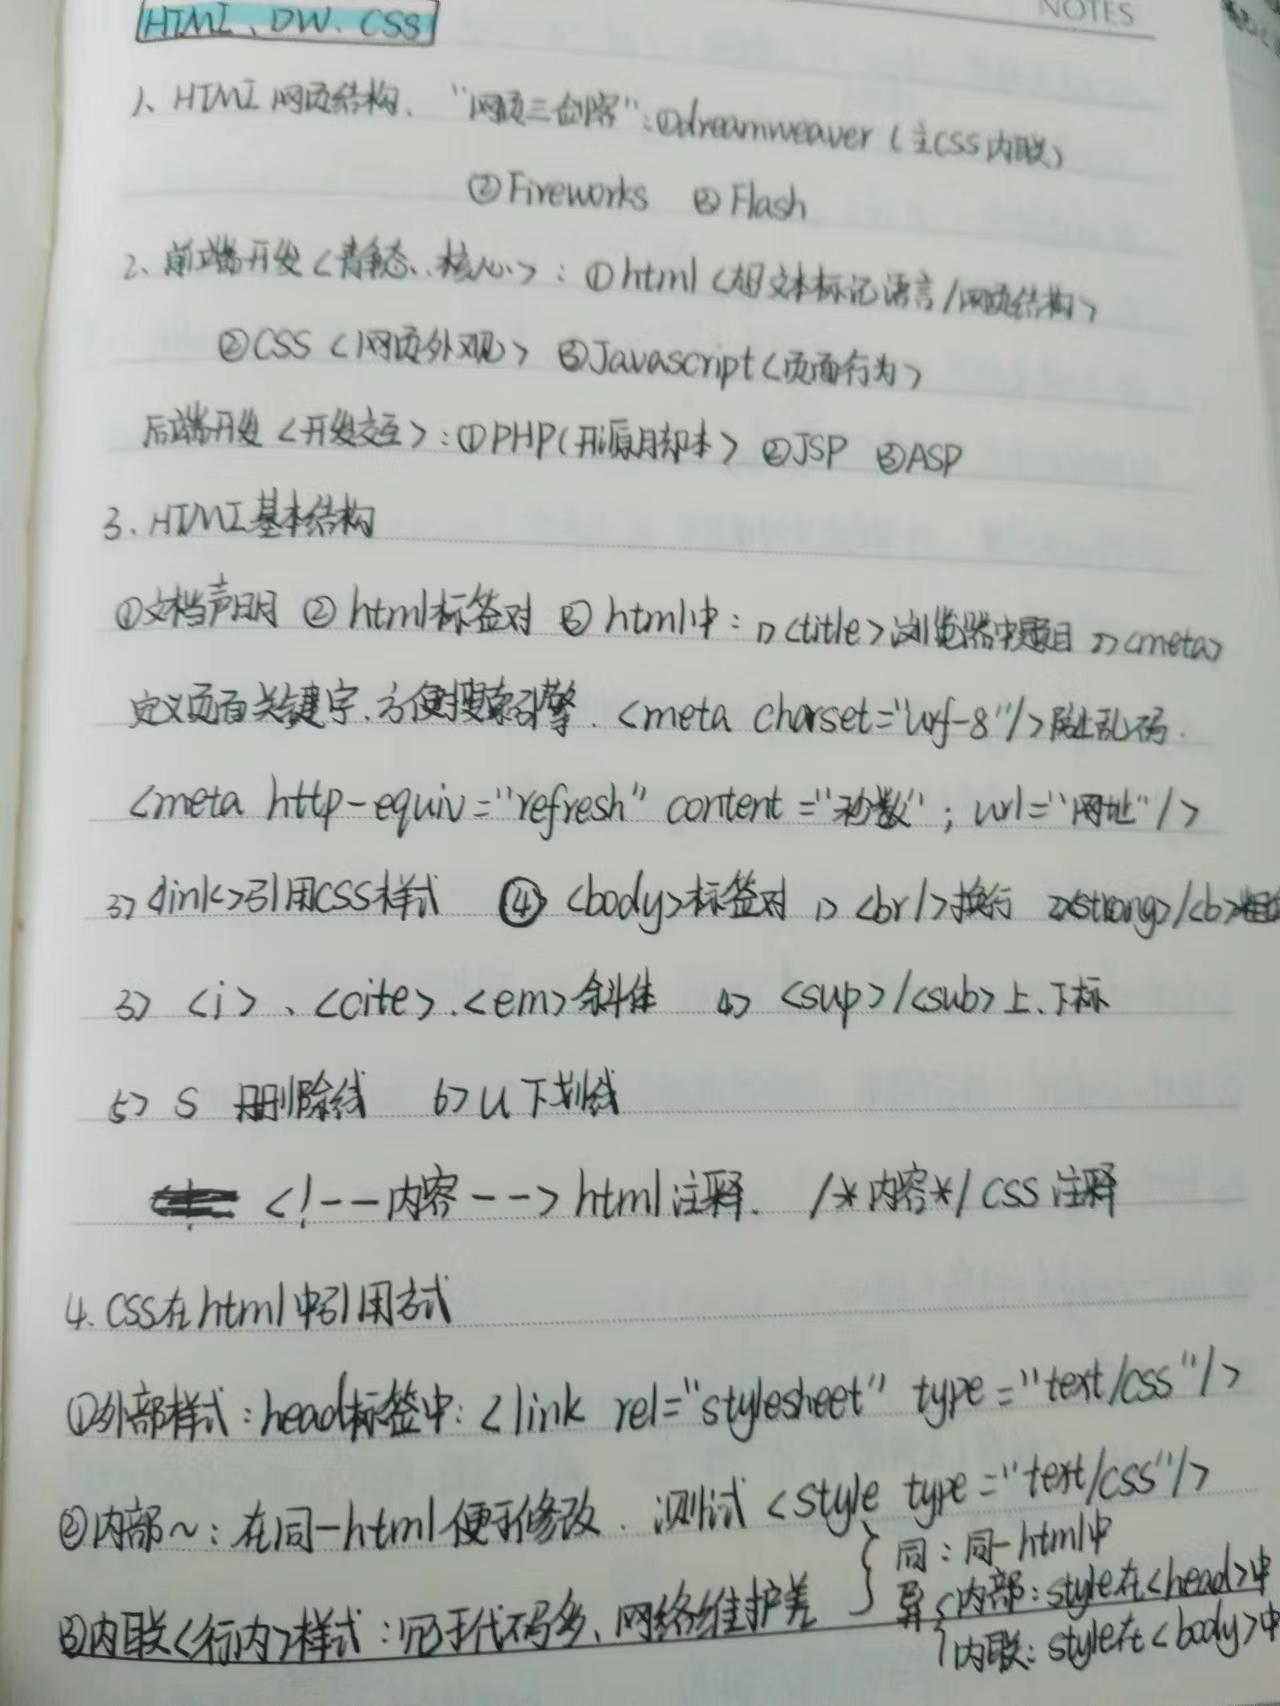 NOTES
HTML、DW、CSS
1、HTML 网页结构. "网页三剑客":①dreamweaver(主CSS内联)
②Fireworks ③Flash
2、前端开发<青争态、核心>:①html<超文本标记语言/网页结构>
②CSS<网页外观> ③Javascript<页面行为>
后端开发<开发交互>:①PHP(开源脚本> ②JSP ③ASP
3.HTML基本结构
①文档声明 ②html标签对 ③html中:1><title>浏览器中题目 2><meta>
定义页面关键字.方便搜索引擎.<meta charset="urf-8"/>防止乱码.
<meta http-equiv="refresh" content="秒数"; url="网址"/>
3><link>引用CSS样式 ④<body>标签对 1><br/>换行 2><strong>/<b>粗体
3><i>、<cite>.<em>斜体 4><sup>/<sub>上、下标
5> S 删除线 6>u下划线
<!--内容-->html注释. /*内容*/CSS注释
4.CSS在html中引用方式
①外部样式:head标签中:<link rel="stylesheet" type="text/css"/>
②内部~:在同一html便于修改.测试<style type="text/css"/>
同:同一html中
③内联<行内>样式:冗于代码多、网络维护差 异 内部:style在<head>中
内联:style在<body>中